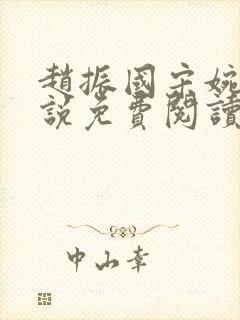 趙振國宋婉
說免費閱讀
中山幸